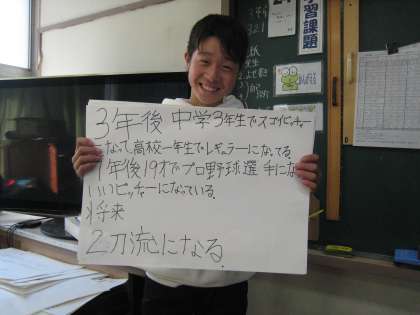 学習課題
3年後 中学3年生でスゴイピッチャー
になって高校一年生でレギュラーになってる
7年後19才でプロ野球選手にな
いいピッチャーになっている
将来
2刀流になる.